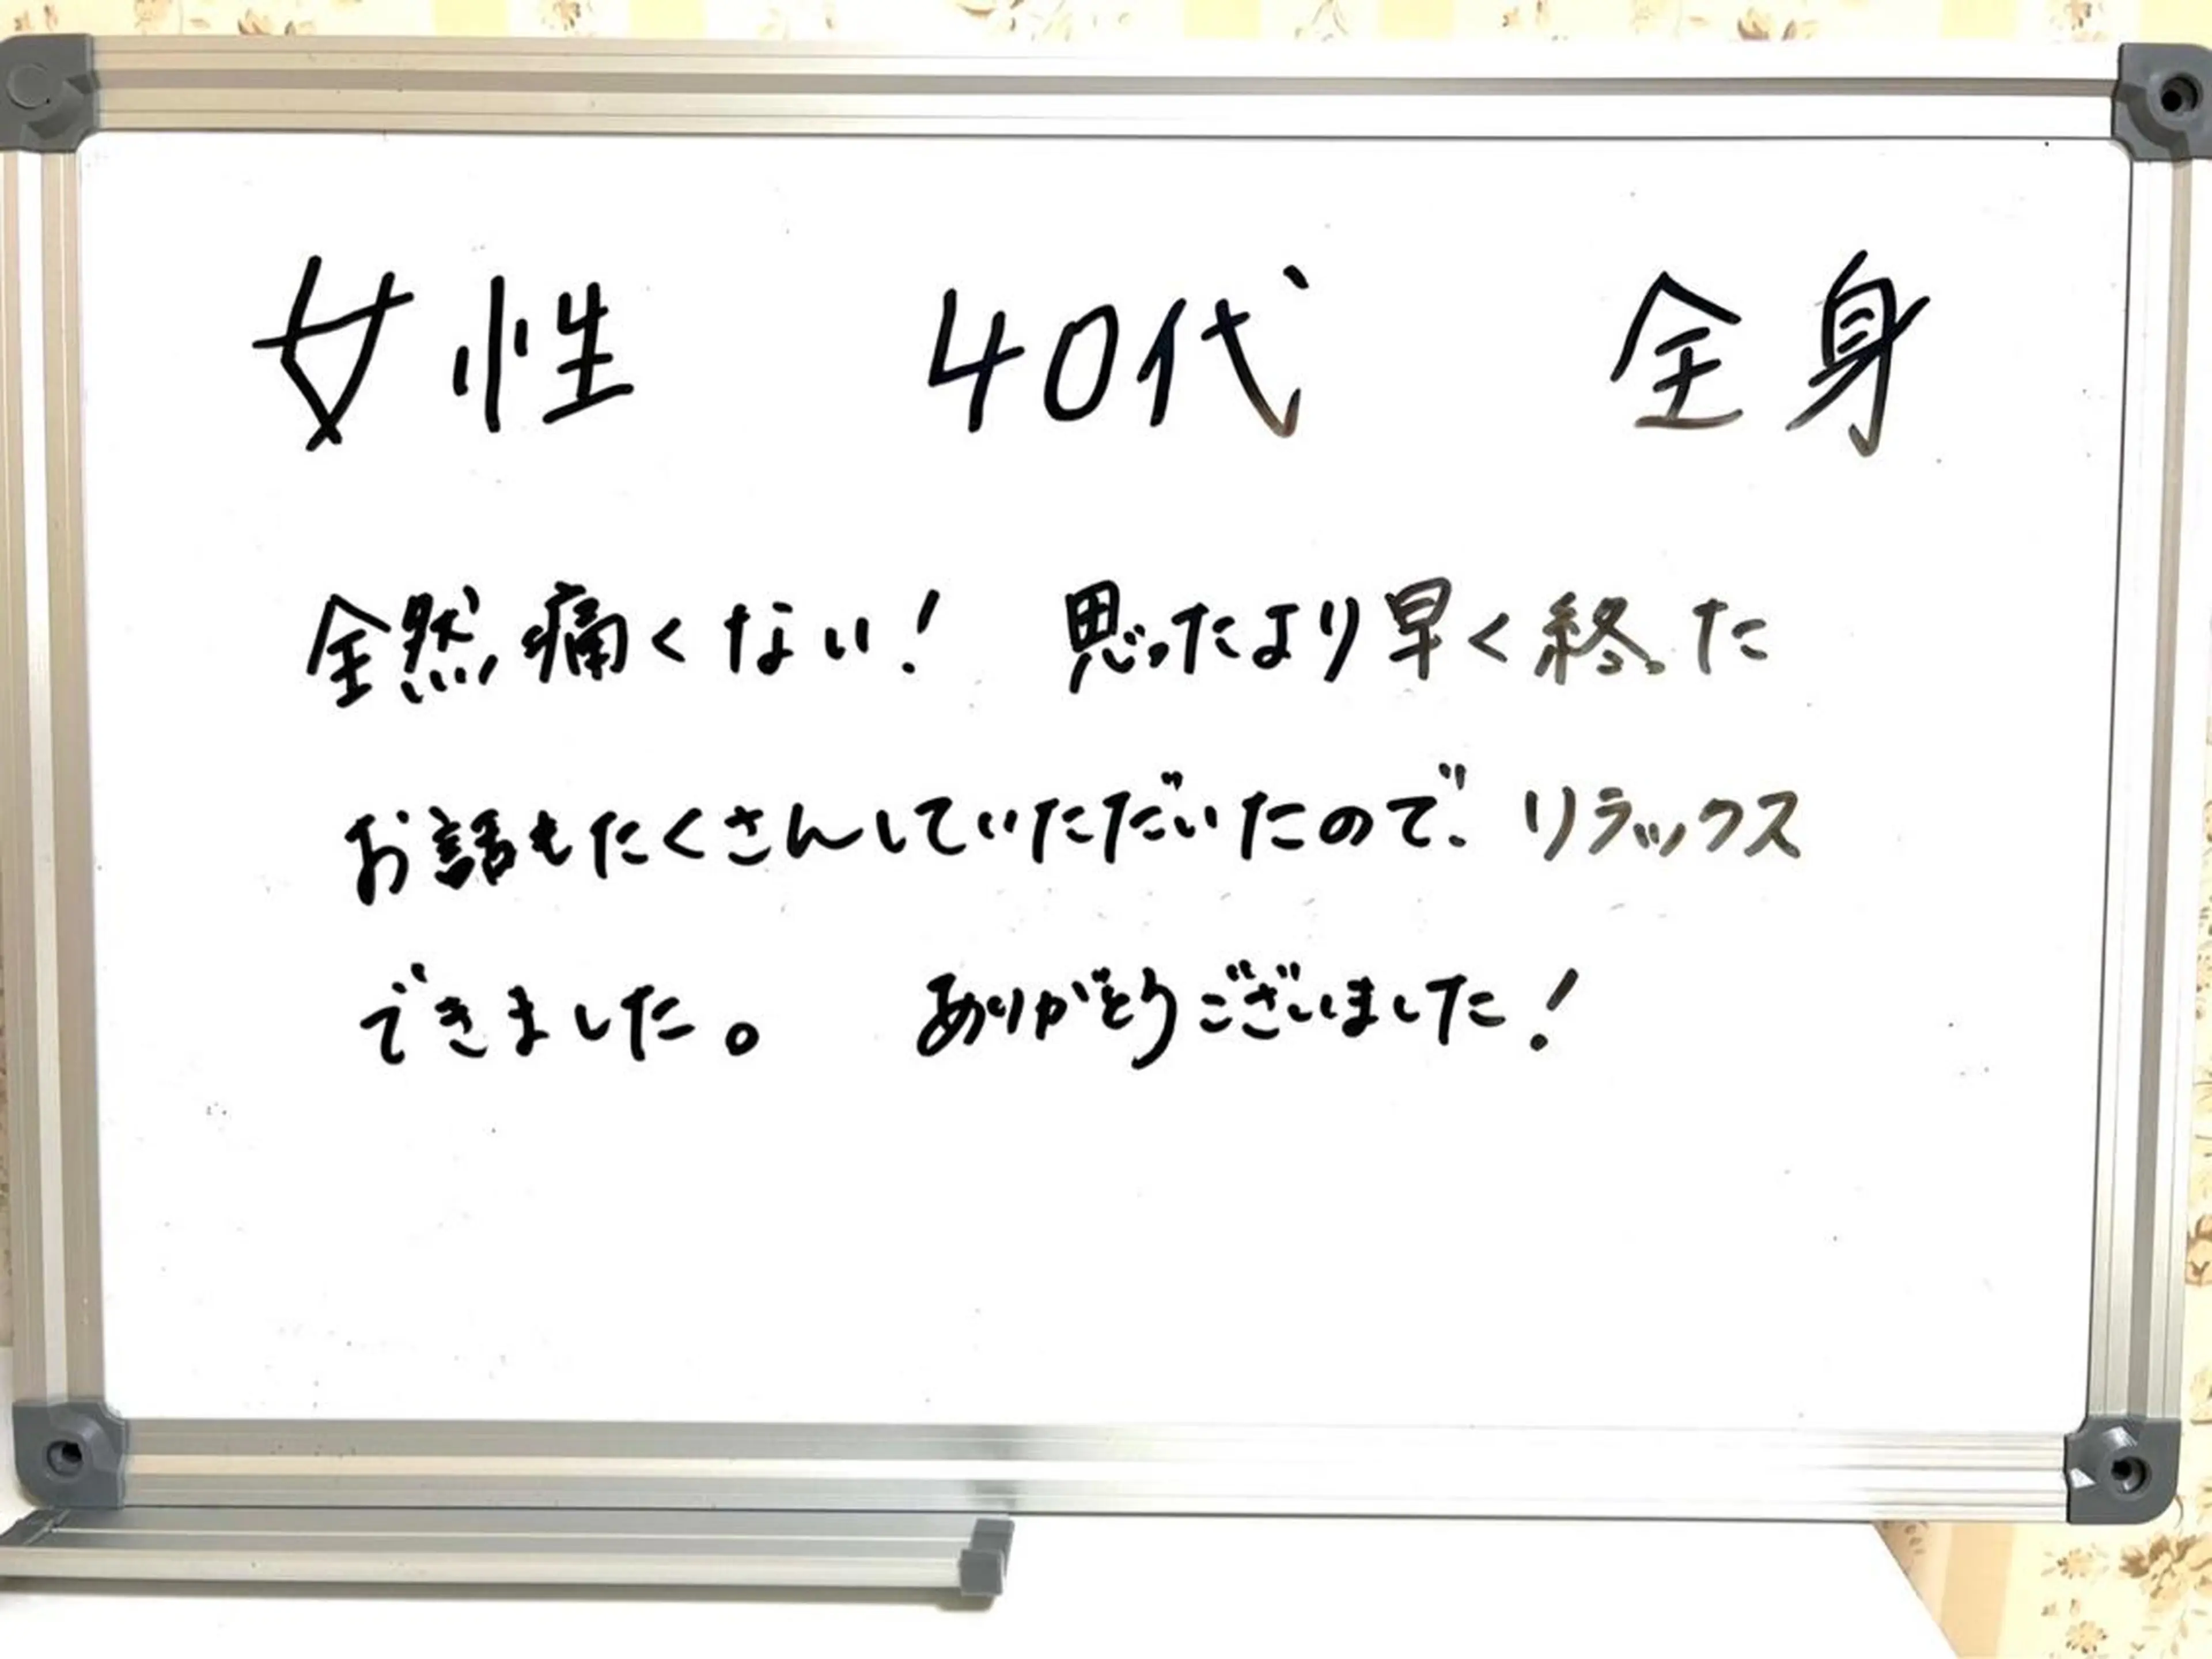 女性 40代 全身
全然痛くない! 思ったより早く終った
お話もたくさんしていただいたので、リラックス
できました。 ありがとうございました!